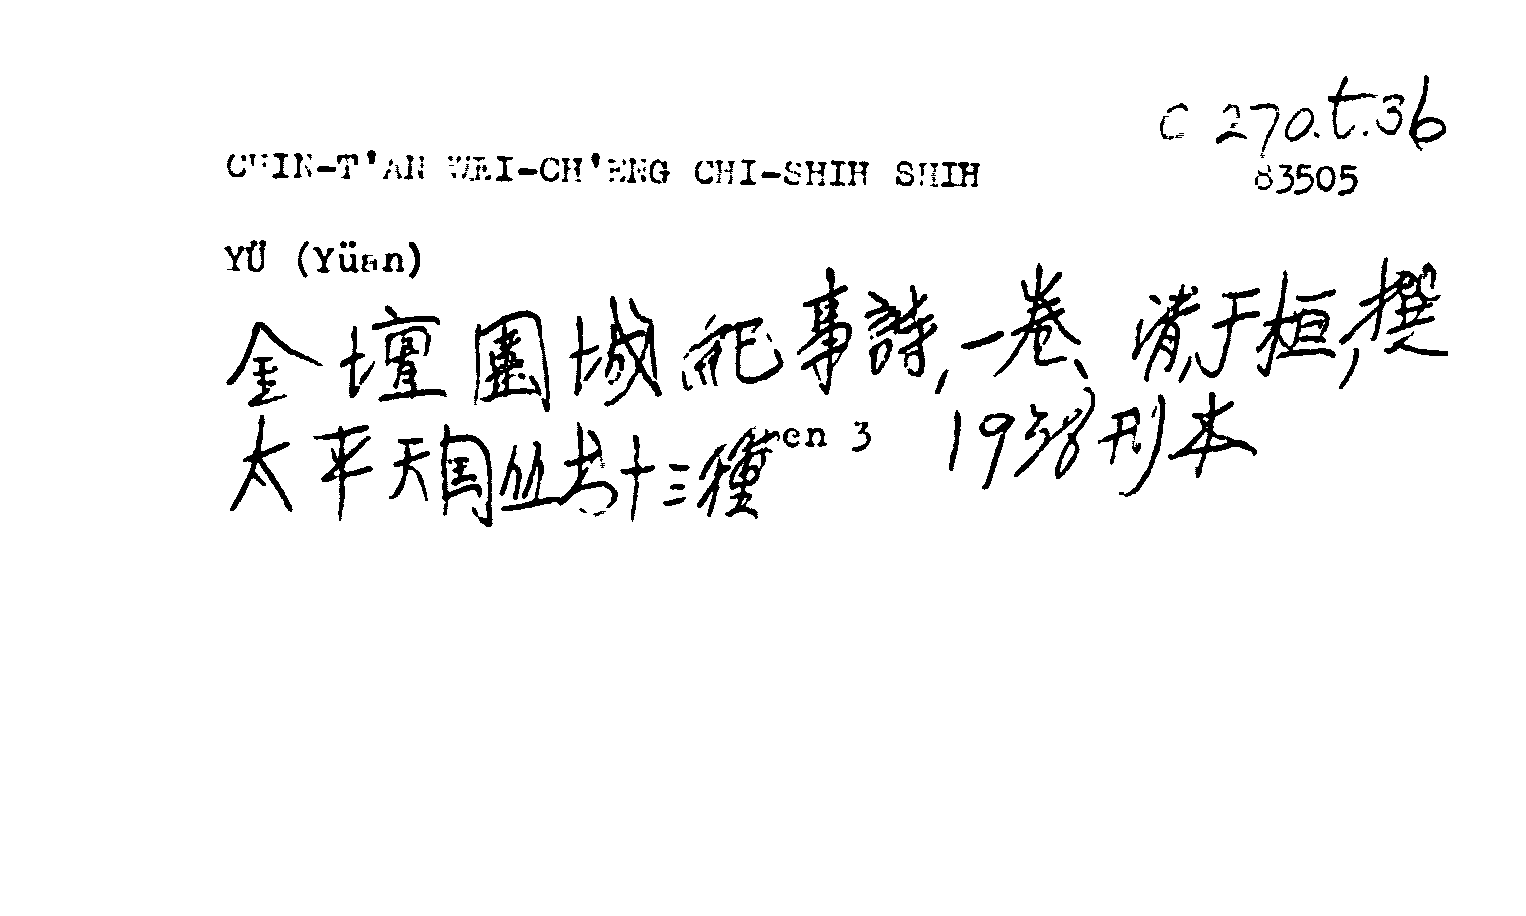 C 270.t.36
CHIN-T'AN WEI-CH'ENG CHI-SHIH SHIH
83505
YÜ (Yüan)
金壇圍城紀事詩, 一卷、清于桓, 撰
太平天国丛书十三種 en 3 1938刊本